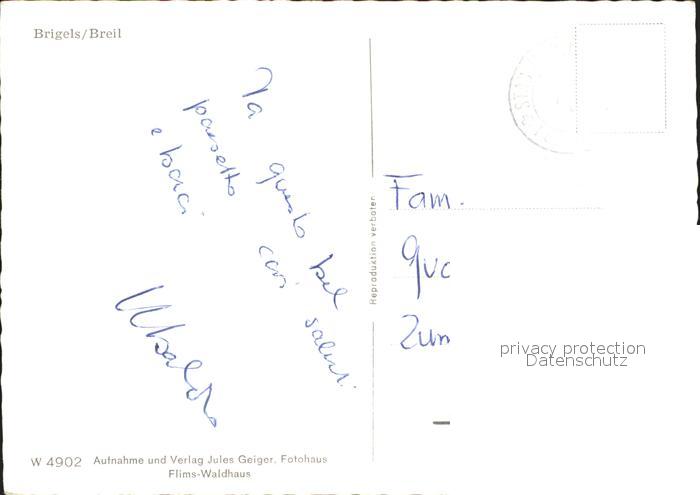 Brigels/Breil
Da questo bel
paesetto cari saluti
e baci
Ubaldo
Reproduktion verboten
Fam.
privacy protection
Datenschutz
W 4902 Aufnahme und Verlag Jules Geiger, Fotohaus
Flims-Waldhaus